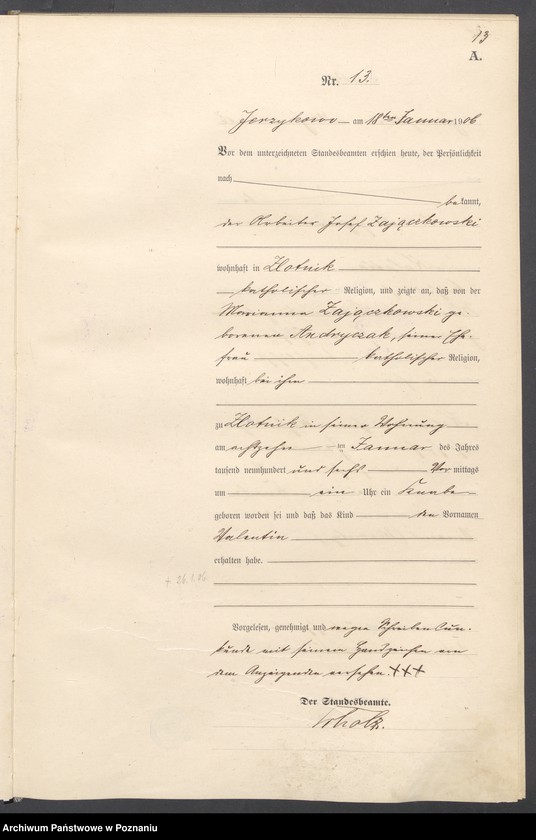 13
A.
Nr. 13.
Jerzykowo am 18ten Januar 1906
Vor dem unterzeichneten Standesbeamten erschien heute, der Persönlichkeit
nach
bekannt,
der Arbeiter Josef Zajączkowski
wohnhaft in Zlotnik
katholischer Religion, und zeigte an, daß von der
Marianna Zajączkowski ge-
borenen Andryczak, seiner Ehe-
frau katholischer Religion,
wohnhaft bei ihm
zu Zlotnik in seiner Wohnung
am achtzehn ten Januar des Jahres
tausend neunhundert und sechs Vor mittags
um ein Uhr ein Knabe
geboren worden sei und daß das Kind den Vornamen
Valentin
erhalten habe.
+ 26.1.06
Vorgelesen, genehmigt und wegen Schreibensun-
kunde mit seinem Handzeichen von
dem Anzeigenden versehen. +++
Der Standesbeamte.
Archiwum Państwowe w Poznaniu